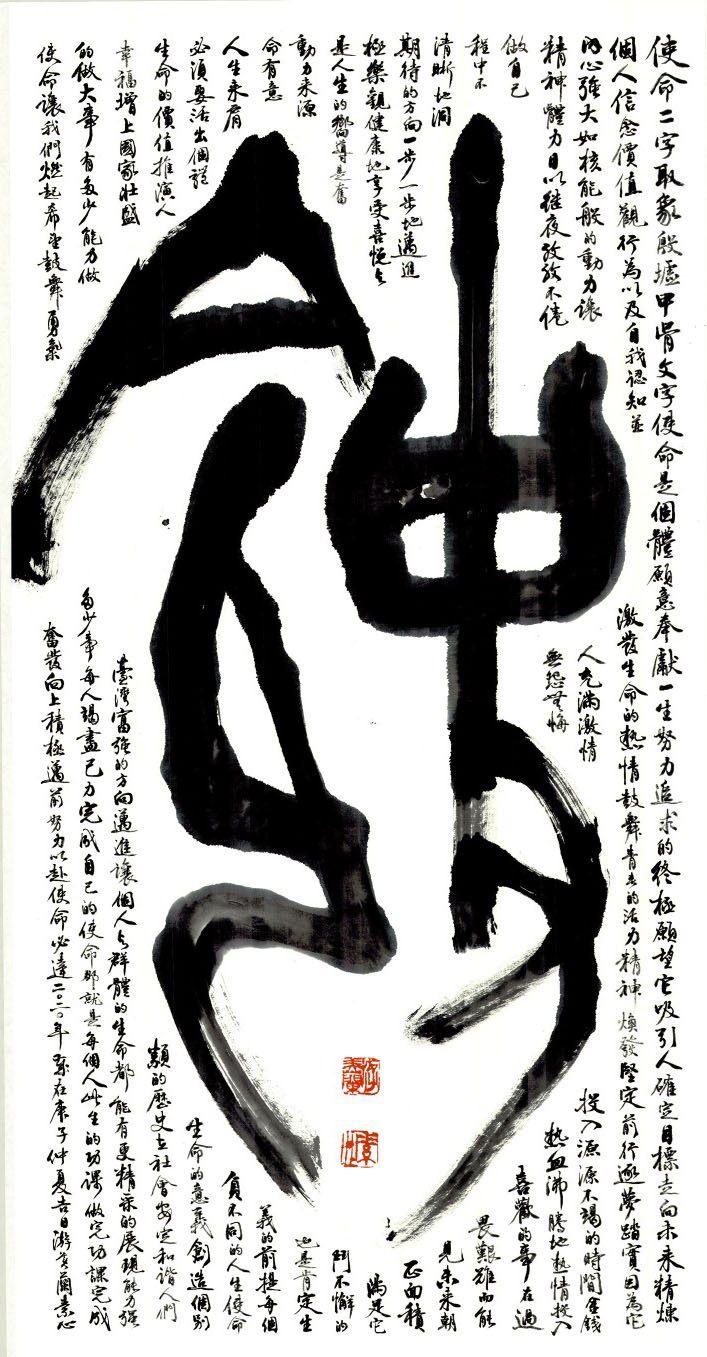 使命
使命二字取象殷墟甲骨文字使命是個體願意奉獻一生努力追求的終極願望它吸引人確定目標走向未來精煉
個人信念價值觀行為以及自我認知並激發生命的熱情鼓舞青春的活力精神煥發堅定前行逐夢踏實因為它
內心強大如核能般的動力讓人充滿激情投入源源不竭的時間金錢
精神體力日以繼夜孜孜不倦無怨無悔熱血沸騰地熱情投入
做自己喜歡的事在過
程中不畏艱難而能
清晰地洞見未來朝
期待的方向一步一步地邁進正面積
極樂觀健康地享受喜悅與滿足它
是人生的嚮導是奮鬥不懈的
動力來源也是肯定生
命有意義的前提每個
人生來肩負不同的人生使命
必須要活出個體生命的意義創造個別
生命的價值推演人類的歷史立社會安定和諧人們
幸福增上國家壯盛臺灣富強的方向邁進讓個人與群體的生命都能有更精采的展現能力強
的做大事有多少能力做多少事每人竭盡己力完成自己的使命那就是每個人此生的功課做完功課完成
使命讓我們燃起希望鼓舞勇氣奮發向上積極邁前努力以赴使命必達二〇二〇年歲在庚子仲夏吉日游蘭素心